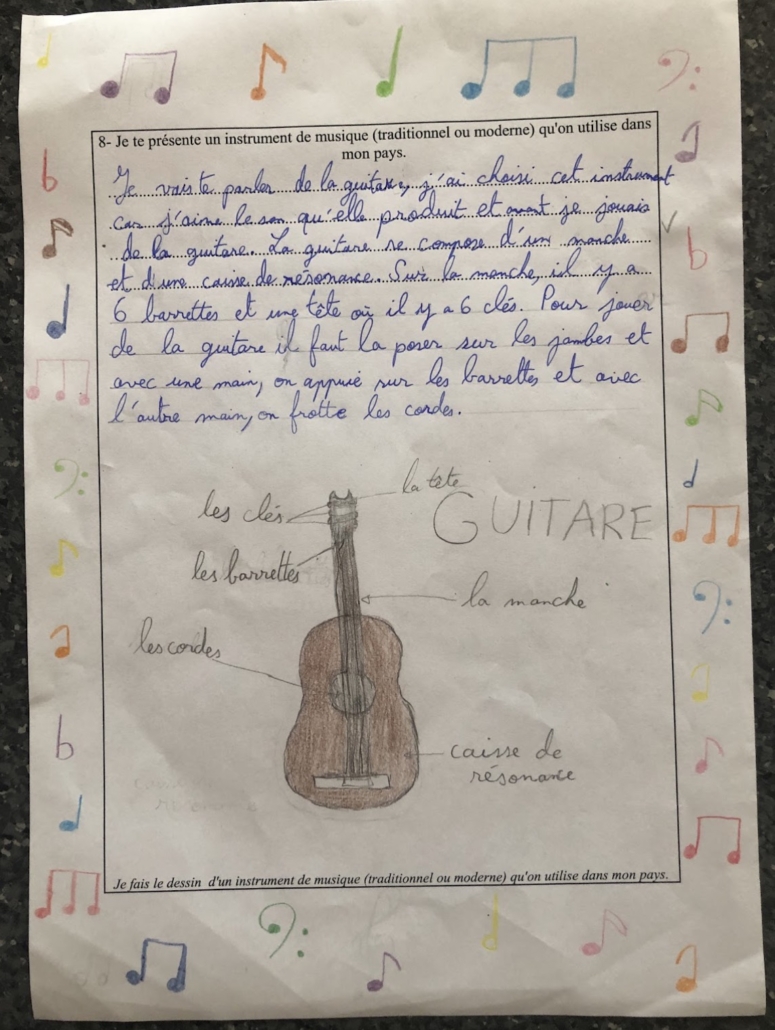 8- Je te présente un instrument de musique (traditionnel ou moderne) qu'on utilise dans
mon pays.
Je vais te parler de la guitare, j'ai choisi cet instrument
car j'aime le son qu'elle produit et avant je jouais
de la guitare. La guitare se compose d'un manche
et d'une caisse de résonance. Sur la manche, il y a
6 barrettes et une tête où il y a 6 clés. Pour jouer
de la guitare il faut la poser sur les jambes et
avec une main, on appuie sur les barrettes et avec
l'autre main, on frotte les cordes.
la tête
les clés
GUITARE
les barrettes
la manche
les cordes
caisse de
résonance
Je fais le dessin d'un instrument de musique (traditionnel ou moderne) qu'on utilise dans mon pays.